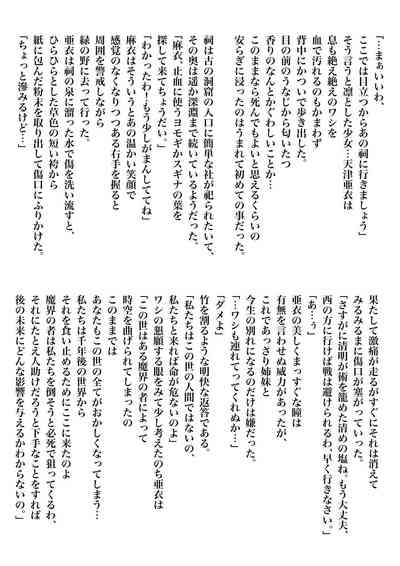 「…まぁいいわ、
ここでは目立つからあの祠に行きましょう」
そう言うと凛とした少女…天津亜衣は
息も絶え絶えのワシを
血で汚れるのもかまわず
背中にかついで歩き出した。
目の前のうなじから匂いたつ
香りのなんとかぐわしいことか…
このままなら死んでもよいと思えるくらいの
安らぎに浸ったのはうまれて初めての事だった。
祠は古の洞窟の入口に簡単な社が祀られたいて、
その奥は遥か深淵まで続いているようだった。
「麻衣、止血に使うヨモギかスギナの葉を
探して来てちょうだい。」
「わかったわー！もう少しがまんしててね」
麻衣はそういうとあの温かい笑顔で
感覚のなくなりつつある右手を握ると
周囲を警戒しながら
緑の野に去って行った。
亜衣は祠の泉に溜った水で傷を洗い流すと、
ひらひらとした草色の短い袴から
紙に包んだ粉末を取り出して傷口にふりかけた。
「ちょっと滲みるけど…」
果たして激痛が走るがすぐにそれは消えて
みるみるまに傷口が塞がっていった。
「さすがに清明が術を籠めた清めの塩ね。もう大丈夫、
西の方に行けば戦は避けられるわ、早く行きなさい。」
「あ…ぅ」
亜衣の美しくまっすぐな瞳は
有無を言わわせぬ威力があったが、
これであっさり姉妹と
今生の別れになるのだけは嫌だった。
「…ワシも連れてってくれぬか…」
「ダメよ」
竹を割るような明快な返答である。
「私たちはこの世の人間ではないの。
私たちと来れば命が危ないのよ」
ワシの懇願する眼をみて少し考えたのち亜衣は
「この世はある魔界の者によって
時空を曲げられてしまったの
このままでは
あなたもこの世の全てがおかしくなってしまう…
私たちは千年後の世界から
それを食い止めるためにここに来たのよ
魔界の者は私たちを倒そうと必死で狙ってくるわ、
それにたとえ人助けだろうと下手なことをすれば
後の未来にどんな影響を与えるかわからないの。」